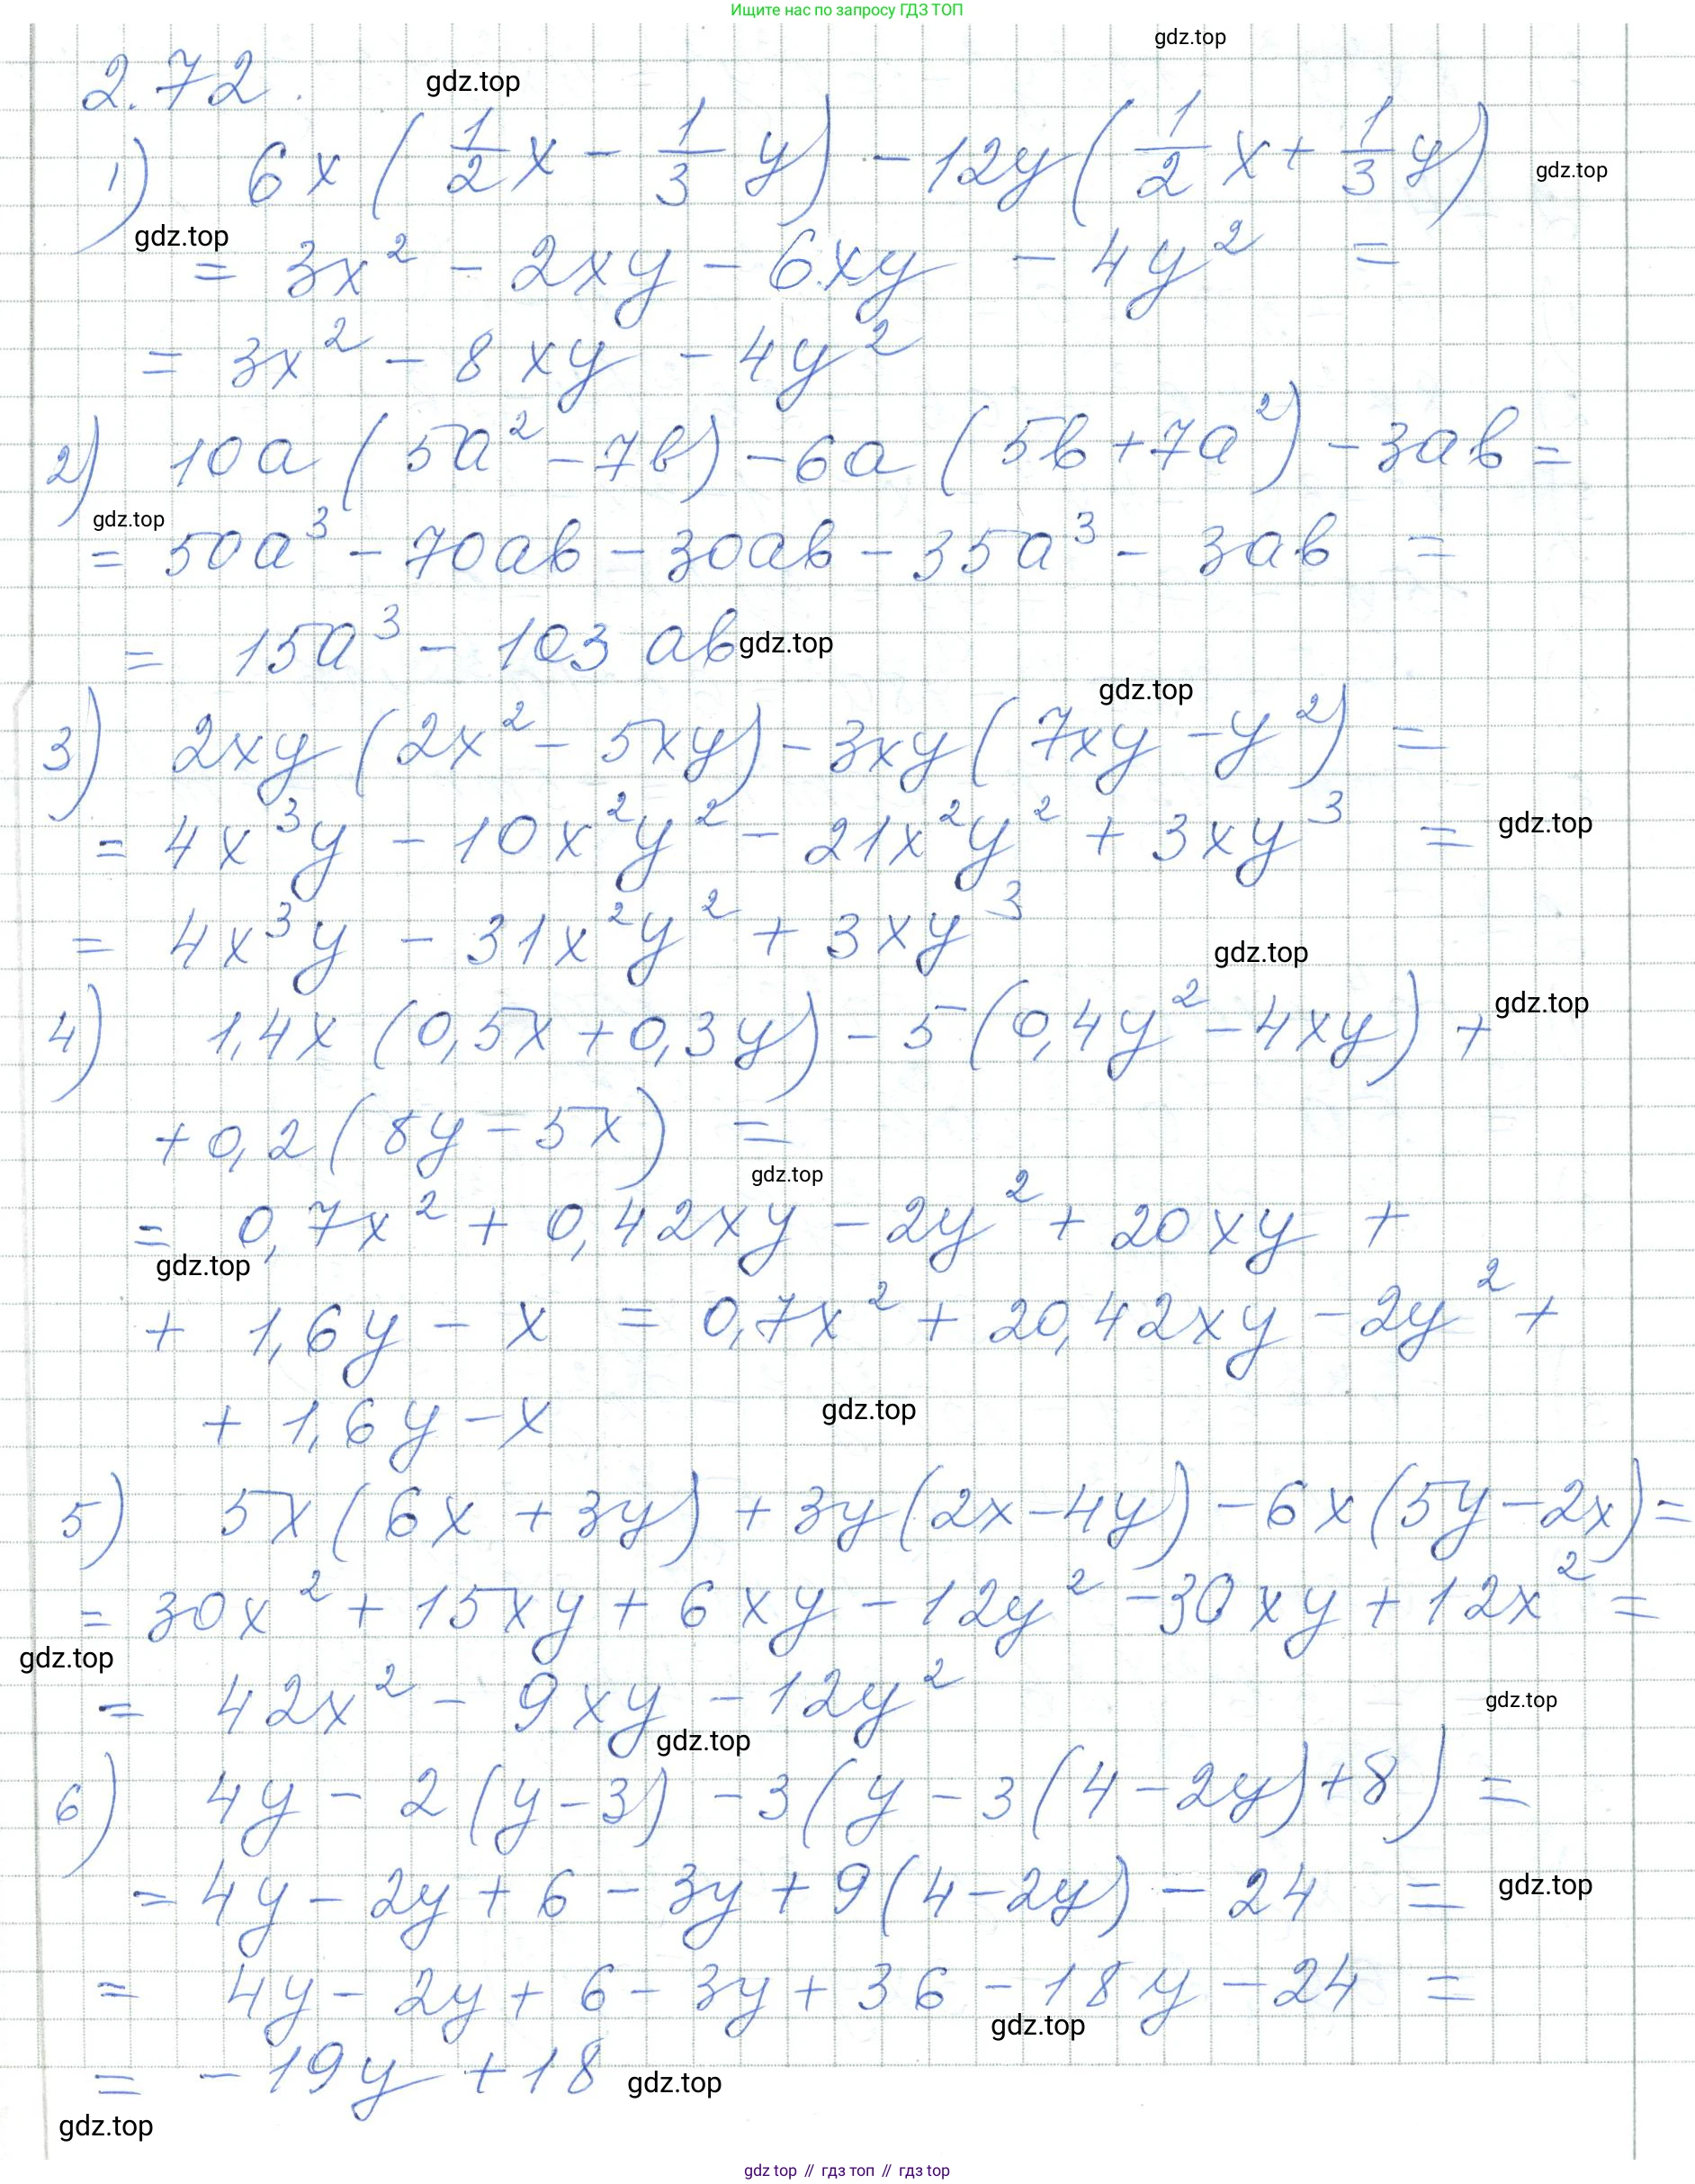 Ищите нас по запросу ГДЗ ТОП
gdz.top
2.72.
gdz.top
1) 6x(1/2x - 1/3 y) - 12y(1/2 x + 1/3 y)
gdz.top
gdz.top
= 3x² - 2xy - 6xy - 4y² =
= 3x² - 8xy - 4y²
2) 10a(5a² - 7b) - 6a(5b + 7a²) - 3ab =
gdz.top
= 50a³ - 70ab - 30ab - 35a³ - 3ab =
= 15a³ - 103 ab
gdz.top
gdz.top
3) 2xy(2x² - 5xy) - 3xy(7xy - y²) =
= 4x³y - 10x²y² - 21x²y² + 3xy³ =
gdz.top
= 4x³y - 31x²y² + 3xy³
gdz.top
4) 1,4x(0,5x + 0,3y) - 5(0,4y² - 4xy) +
gdz.top
+ 0,2(8y - 5x) =
gdz.top
= 0,7x² + 0,42xy - 2y² + 20xy +
gdz.top
+ 1,6y - x = 0,7x² + 20,42xy - 2y² +
+ 1,6y - x
gdz.top
5) 5x(6x + 3y) + 3y(2x - 4y) - 6x(5y - 2x) =
= 30x² + 15xy + 6xy - 12y² - 30xy + 12x² =
gdz.top
= 42x² - 9xy - 12y²
gdz.top
gdz.top
6) 4y - 2(y - 3) - 3(y - 3(4 - 2y) + 8) =
= 4y - 2y + 6 - 3y + 9(4 - 2y) - 24 =
gdz.top
= 4y - 2y + 6 - 3y + 36 - 18y - 24 =
gdz.top
= -19y + 18
gdz.top
gdz.top
gdz top // гдз топ // гдз top